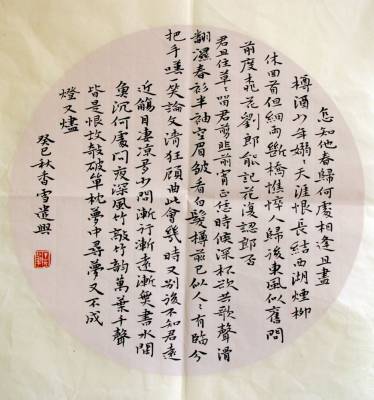 怎知他春歸何處相逢且盡
樽酒少年嫋天涯恨長結西湖煙柳
休回首但細雨斷橋憔悴人歸後東風似舊問
前度桃花劉郎能記花復認郎否
君且住草草留君剪韭前宵正恁時候深杯欲共歌聲滑
翻濕春衫半袖空眉皺看白髮樽前已似人人有臨分
把手嘆一笑論文清狂顧曲此會幾時又別後不知君遠
近觸目淒涼多少悶漸行漸遠漸無書水闊
魚沉何處問夜深風竹敲竹韵萬葉千聲
皆是恨故敧單枕夢中尋夢又不成
燈又燼
癸巳秋香雪遣興